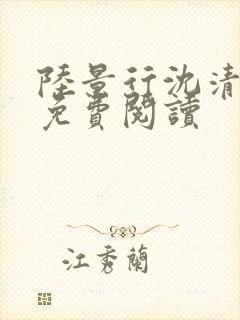 陸景行沈清
免費閱讀
江秀蘭